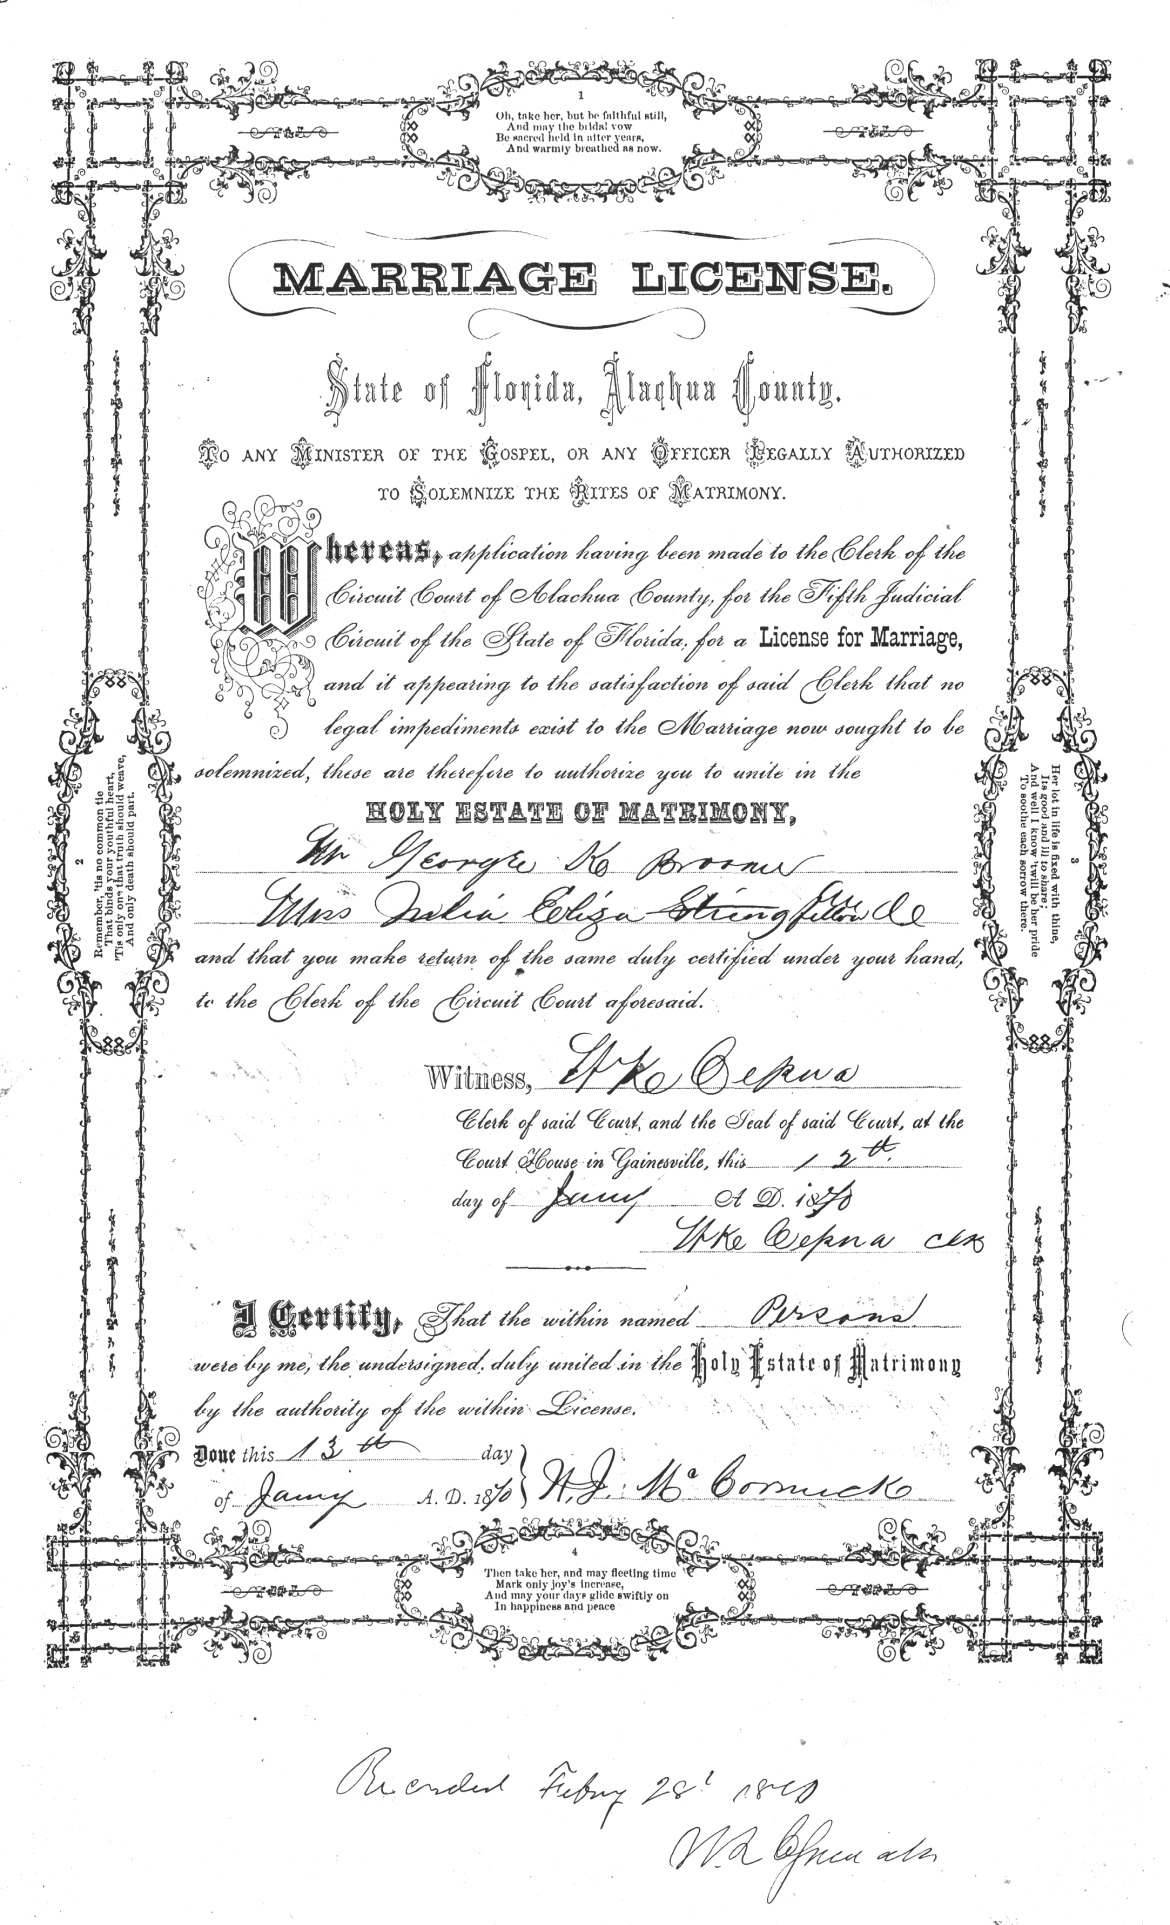 1
Oh, take her, but be faithful still,
And may the bridal vow
Be sacred held in after years,
And warmly breathed as now.
MARRIAGE LICENSE.
State of Florida, Alachua County.
TO ANY MINISTER OF THE GOSPEL, OR ANY OFFICER LEGALLY AUTHORIZED
TO SOLEMNIZE THE RITES OF MATRIMONY.
Whereas, application having been made to the Clerk of the
Circuit Court of Alachua County, for the Fifth Judicial
Circuit of the State of Florida, for a License for Marriage,
and it appearing to the satisfaction of said Clerk that no
legal impediments exist to the Marriage now sought to be
solemnized, these are therefore to authorize you to unite in the
HOLY ESTATE OF MATRIMONY,
Mr George K Broome
Miss Julia Eliza Stringfellow
and that you make return of the same duly certified under your hand,
to the Clerk of the Circuit Court aforesaid.
Witness,
Clerk of said Court, and the Seal of said Court, at the
Court House in Gainesville, this 12th
day of Jany A D. 1870
clk
I Certify, That the within named Persons
were by me, the undersigned, duly united in the Holy Estate of Matrimony
by the authority of the within License.
Done this 13th day
of Jany A. D. 1870 H. J. McCormick
2
Remember, 'tis no common tie
That binds your youthful heart,
'Tis only one that truth should weave,
And only death should part.
3
Her lot in life is fixed with thine,
Its good and ill to share;
And well I know 'twill be her pride
To soothe each sorrow there.
4
Then take her, and may fleeting time
Mark only joy's increase,
And may your days glide swiftly on
In happiness and peace
Recorded Febuy 28t 1870